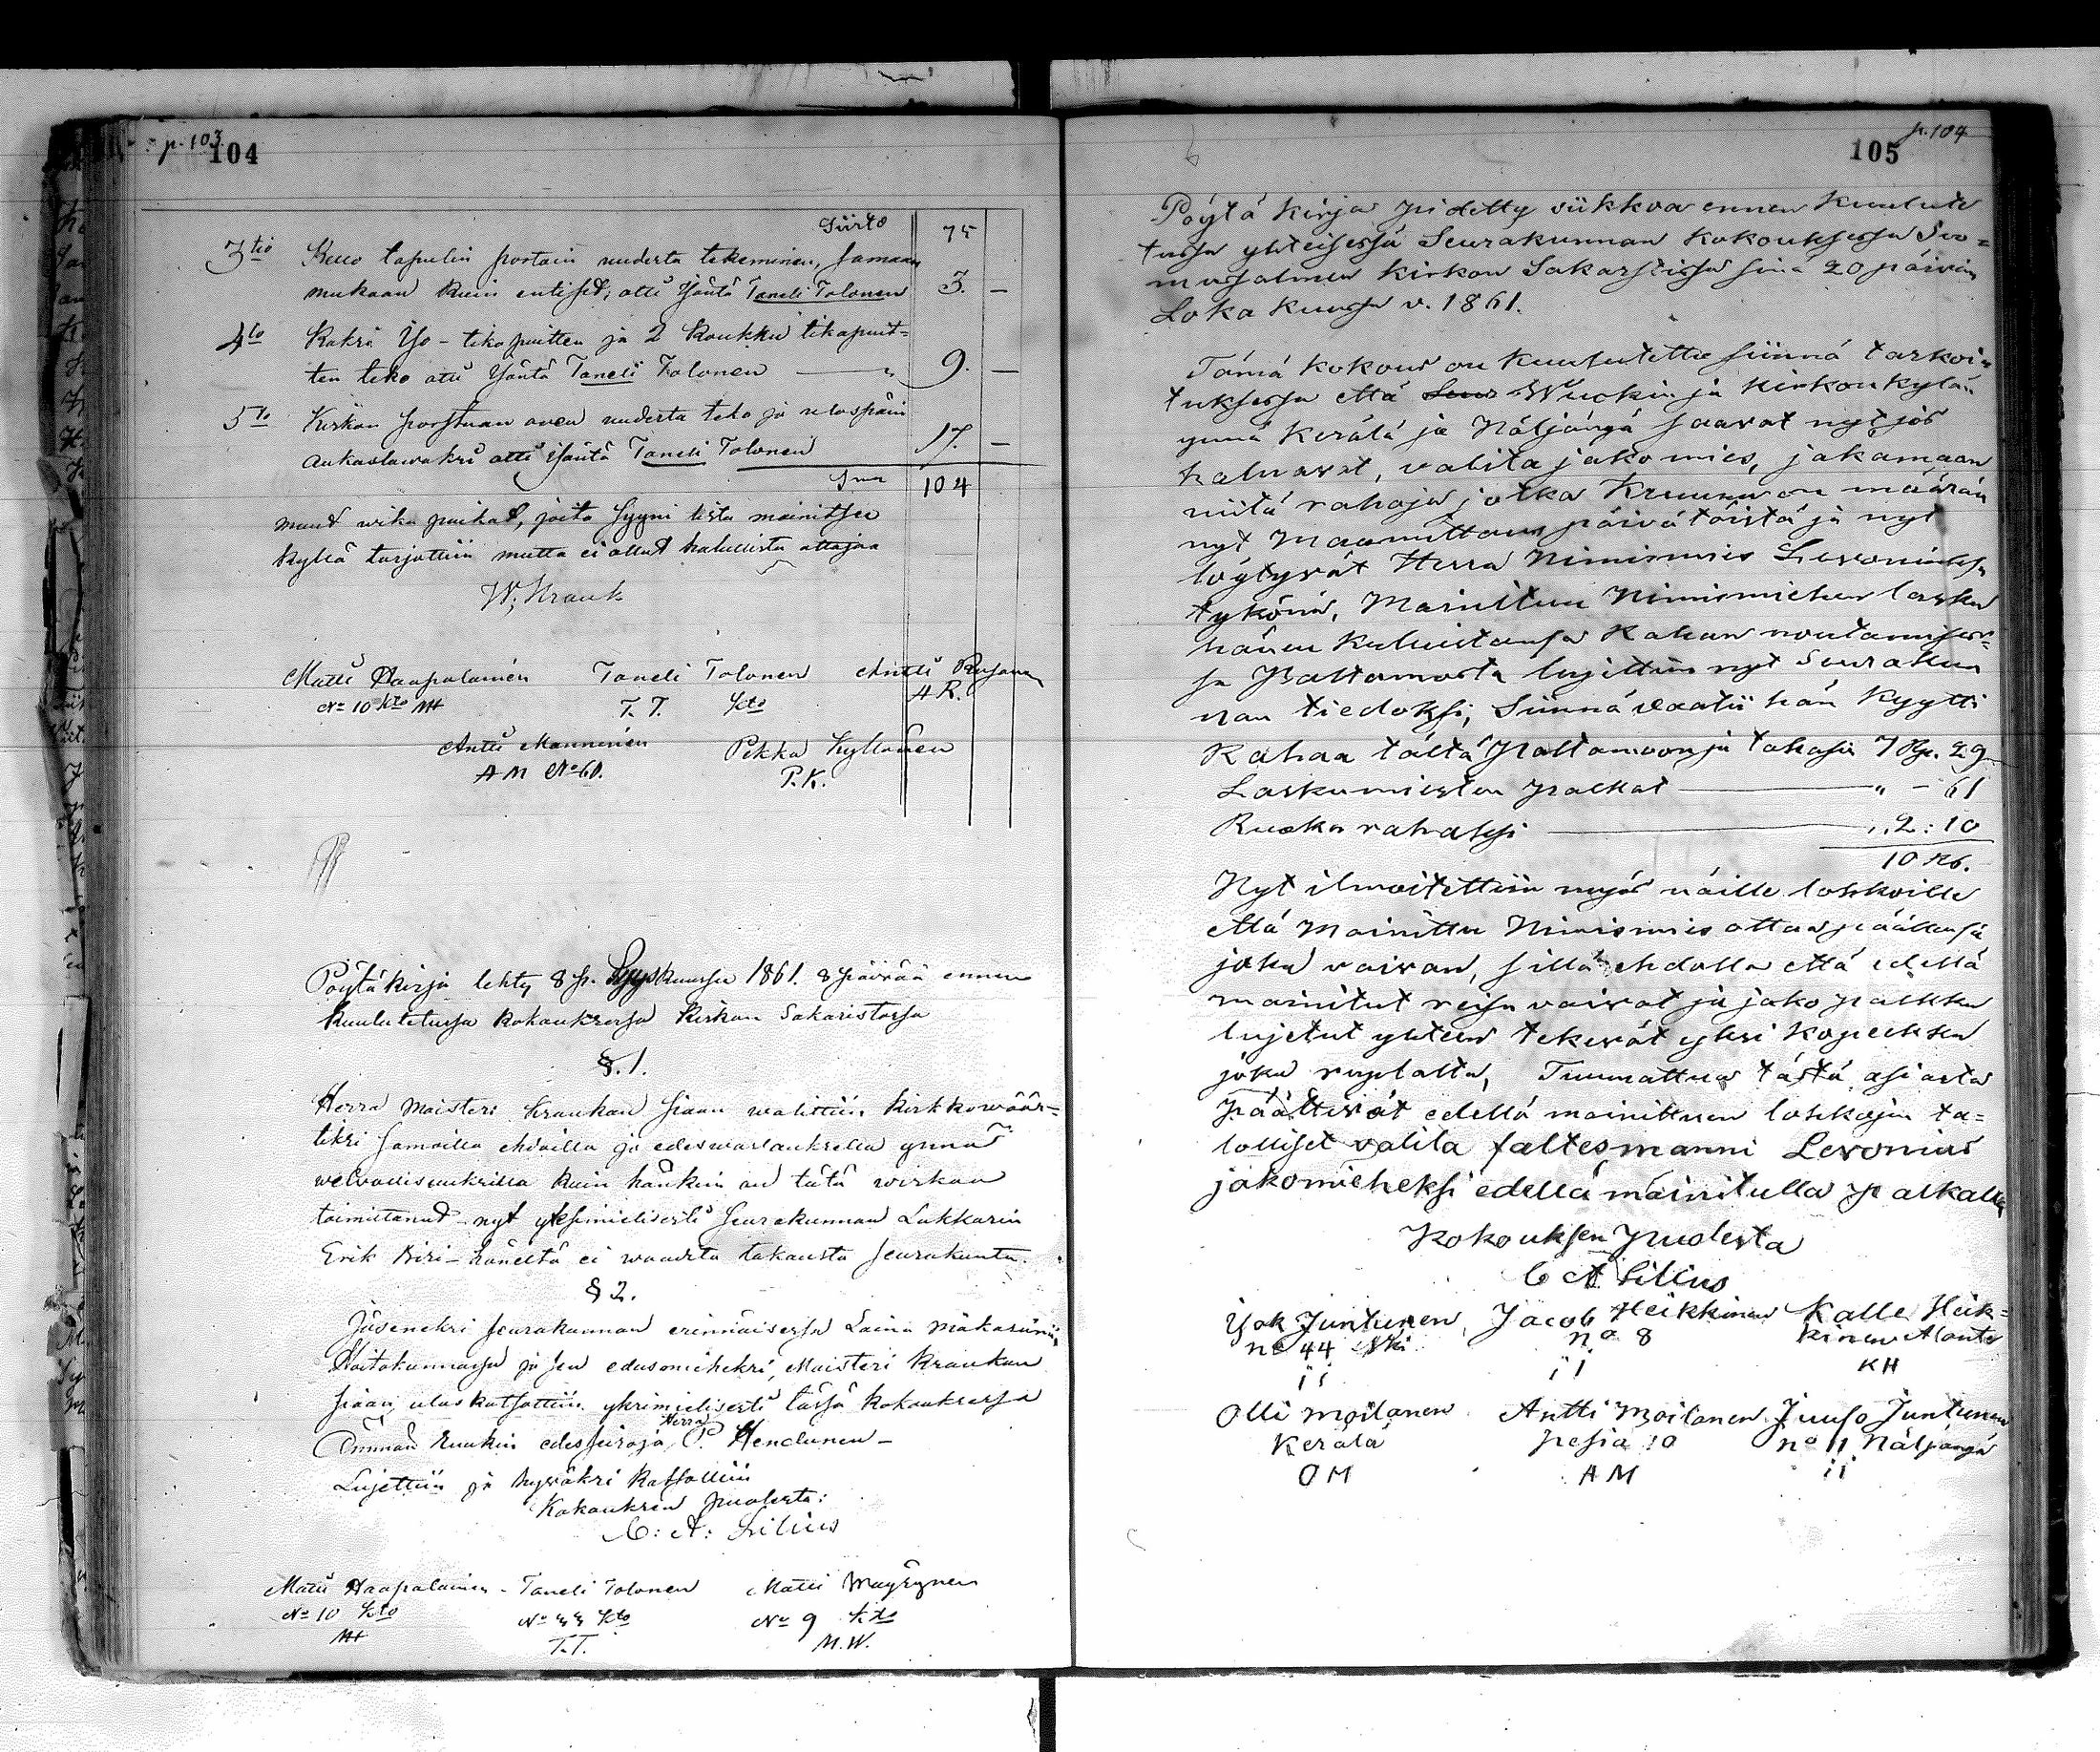 p. 103
104
Siirto 75
3tio Kello tapulin portain uudesta tekeminen, samaan
mukaan kuin entiset; otti Isäntä Taneli Tolonen 3. –
4to Kaksi Iso-tikapuitten ja 2 Koukku tikapuit=
ten teko otti Isäntä Taneli Tolonen — " 9. –
5to Kirkon porstuan oven uudesta teko ja ulospäin
aukastavaksi otti Isäntä Taneli Tolonen 17. –
Sma 104
muut wika paikat, joita syyni lista mainitsee
kyllä tarjottiin mutta ei ollut halullista ottajaa
W; Krank
Matti Haapalainen Taneli Tolonen Antti
No 10 Kto MH T. T. Kto A R.
Antti Manninen Pekka Kyllönen
A M No 60. P. K.
Pöytäkirja tehty 8 p. Syyskuussa 1861. 8 päivää ennen
kuulutetussa kokouksessa Kirkon Sakaristossa
§. 1.
Herra Maisteri Krankan siaan walittiin kirkkowäär=
tiksi samoilla ehdoilla ja edeswastauksella ynnä
welvollisuuksilla kuin hänkin on tätä wirkaa
toimittanut – nyt yksimielisesti Seurakunnan Lukkarin
Erik Kiri – häneltä ei waadita takausta seurakunta.
§ 2.
Jäseneksi seurakunnan erinnäisessä Laina makasiinin
Hoitokunnassa ja sen edusmieheksi, Maisteri Krankan
siaan, uloskatsottiin yksimielisesti tässä kokouksessa
Ämmän Ruukin edesseisoja Herra P. Hendunen –
Lujettiin ja hyväksi katsottiin
Kokouksen puolesta:
C: A: Lilius
Matti Haapalainen – Taneli Tolonen Matti
No 10 Kto No 44 Kto No 9 Kto
MH T. T. M. W.
p. 104
105
Pöytä Kirja pidetty viikkoa ennen kuulute
tussa yhteisessä Seurakunnan Kokouksessa Suo=
musalmen kirkon Sakastissa sinä 20 päivän
Loka kuussa v. 1861.
Tämä kokous on kuulutettu siinnä tarkoi=
tuksessa että Wuokin ja Kirkonkylän
ynnä Kerälä ja Näljängä saavat nyt jos
haluavat, valita jakomies, jakamaan
niitä rahoja jotka Kruunu on määrän
nyt Maamittaus päivätöistä ja nyt
löytyvät Herra Nimismies Levoniuksen
tykönä, Mainitun Nimismiehen lasku
hänen kuluistansa Rahan noutamises=
sa Paltamosta lujettiin nyt Seurakun
nan tiedoksi, Siinnä vaatii hän kyytti
Rahaa tältä Paltamoon ja takasin 7 Rp. 29
Laskumiesten palkat — " – 61
Ruoka rahaksi — " 2: 10
10 Rb.
Nyt ilmoitettiin myös näille lohkoille
että Mainittu Nimismies ottaa päällensä
joku vaivan, sillä ehdolla että edellä
mainitut reisu vaivat ja jako palkka
lujetut yhteen tekevät yksi kopeekka
joka ruplalta, Tuumattua tästä asiasta
päättivät edellä mainittuen lohkojen ta=
lolliset valita faltesmanni Levonius
jakomieheksi edellä mainitulla palkalla
Kokouksen puolesta
C A Lilius
Isak Juntunen, Jacob Heikkinen Kalle Heik=
no 44 no 8 kinen Alanto
i i i i KH
Olli Moilanen Antti Moilanen Juuso Juntunen
Kerälä Pesiä 10 no 11 Näljängä
O M A M i i